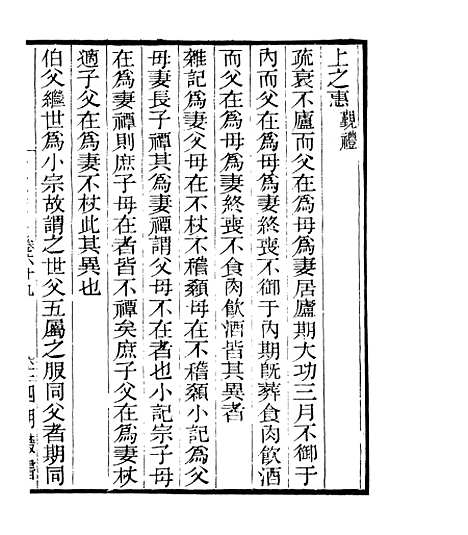 上之惠覲禮
疏衰不廬而父在爲母爲妻居廬期大功三月不御于
內而父在爲母爲妻終喪不御于內期旣葬食肉飮酒
而父在爲母爲妻終喪不食肉飮酒皆其異者
雜記爲妻父母在不杖不稽顙母在不稽顙小記爲父
母妻長子禫其爲妻禫謂父母不在者也小記宗子母
在爲妻禫則庶子母在者皆不禫矣庶子父在爲妻杖
適子父在爲妻不杖此其異也
伯父繼世爲小宗故謂之世父五屬之服同父者期同
卷六十九
四明叢書